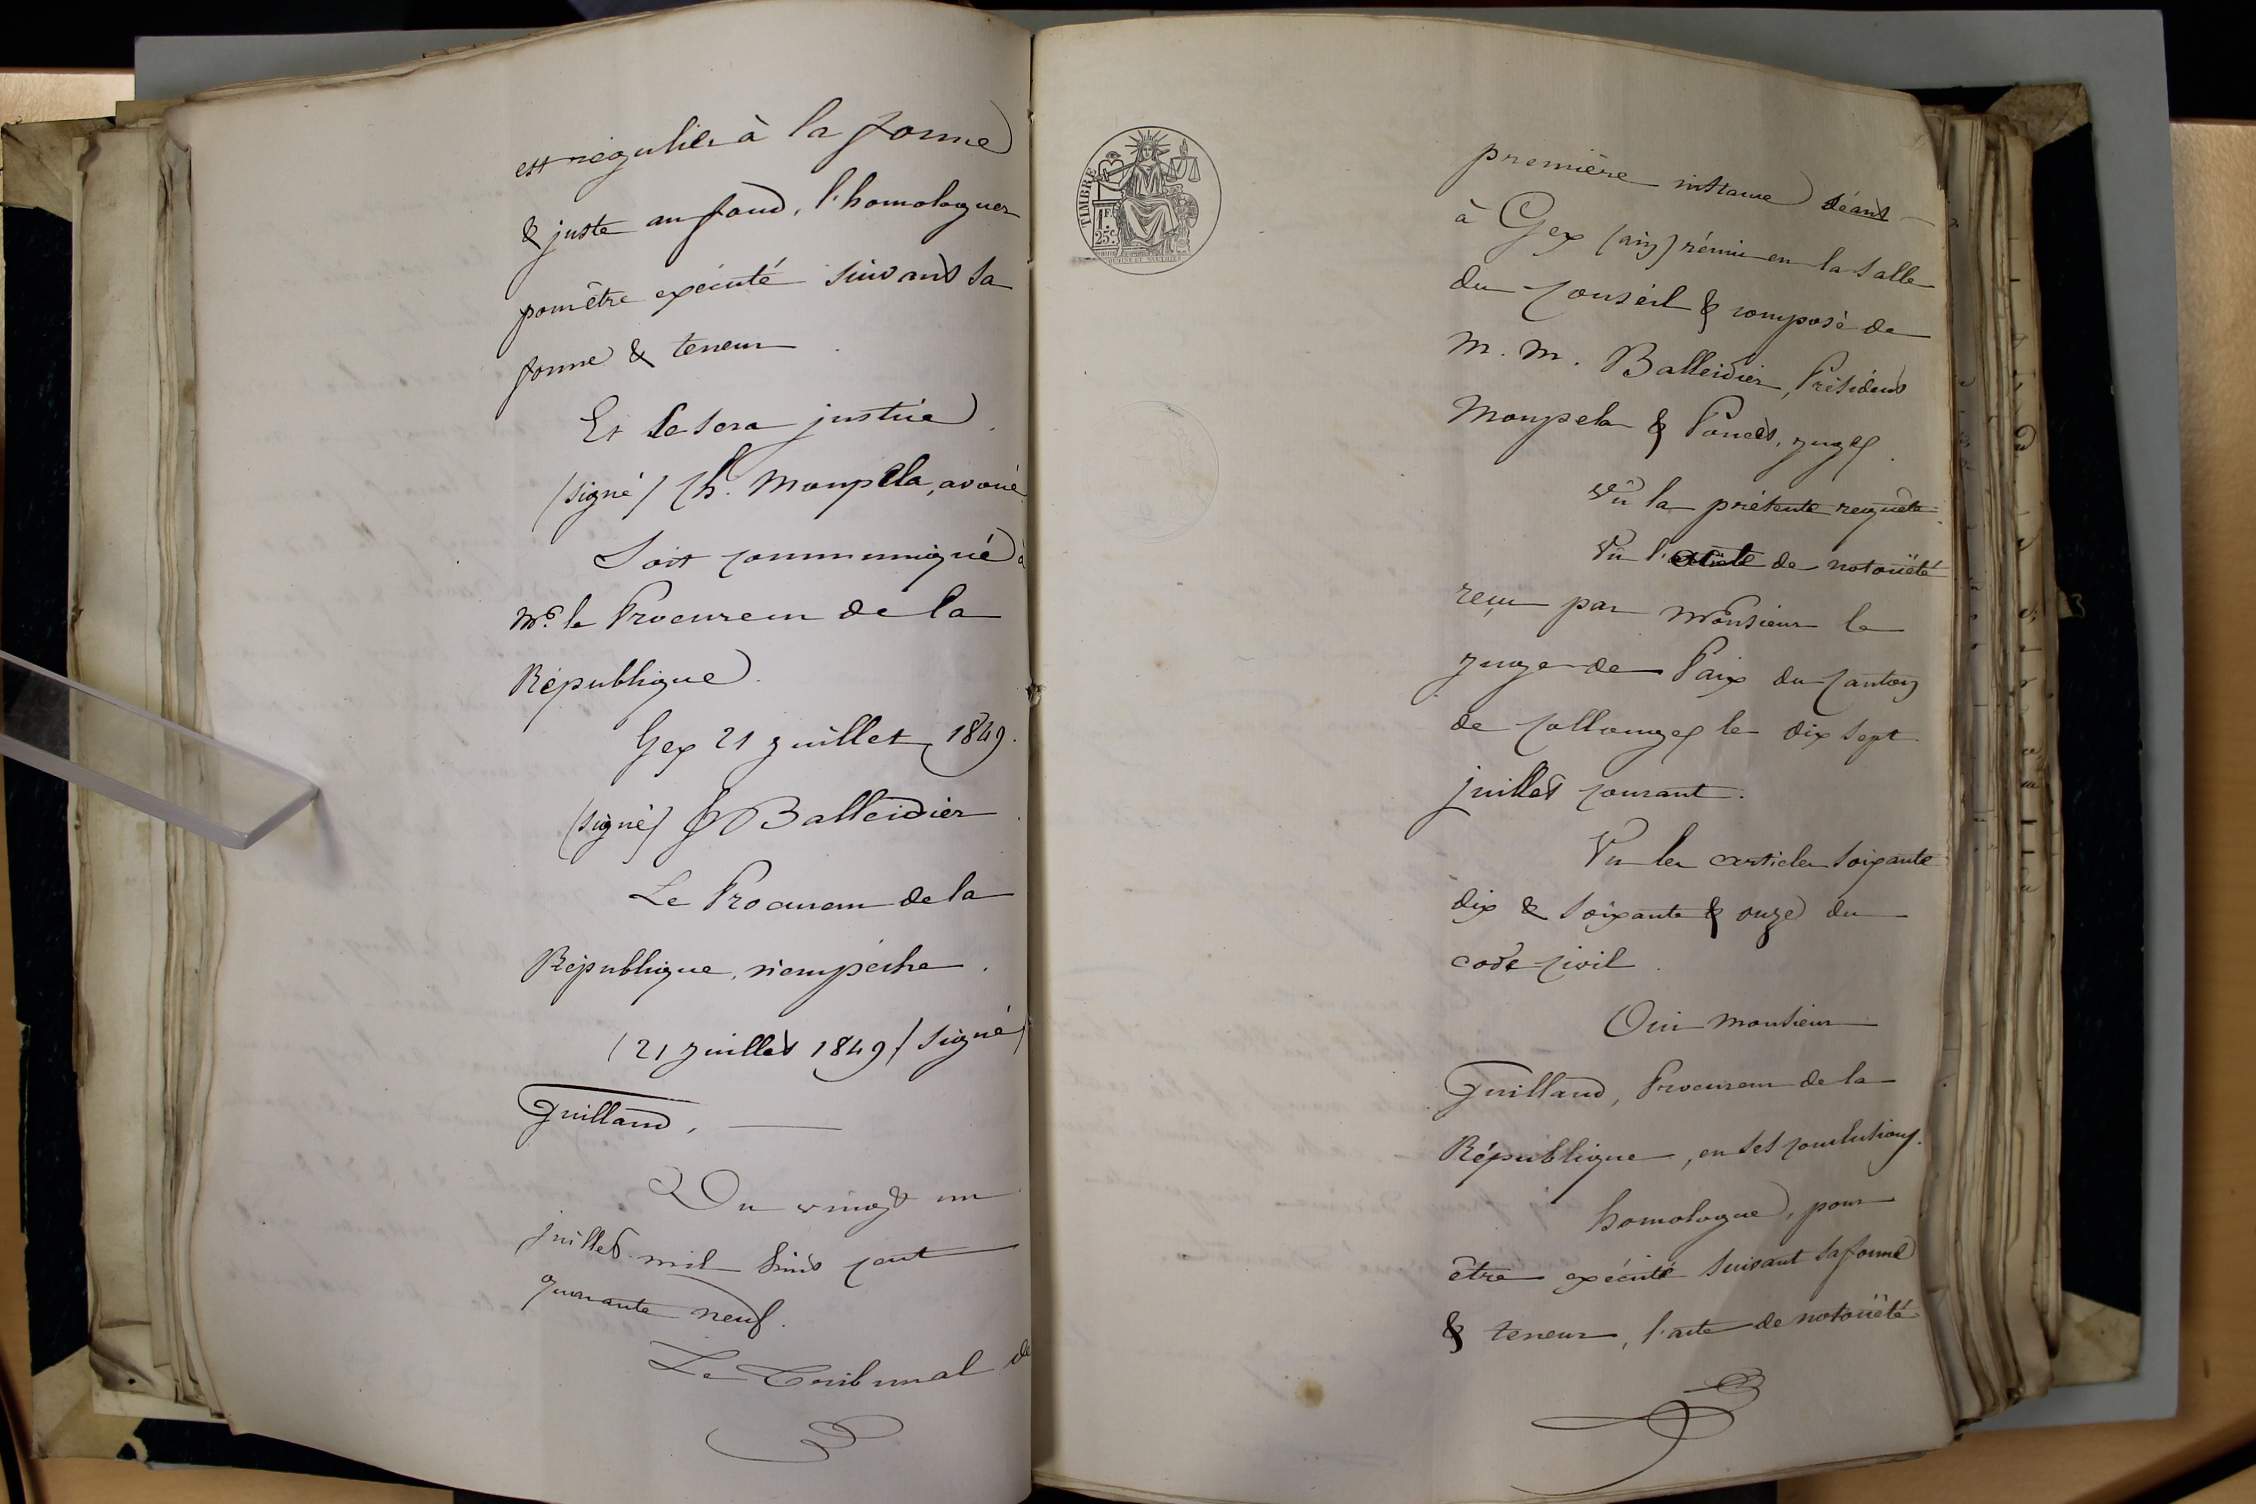 est régulier à la forme
& juste au fond, l'homologuer
pour être exécuté suivant sa
forme & teneur
Et ce sera justice
(signé) Ch. Monpela, avoué
Soit communiqué à
Mr. le Procureur de la
République.
Gex 21 juillet 1849.
(signé) Balleidier
Le Procureur de la
République, n'empêche.
(21 juillet 1849) (signé)
Guilland,
Du vingt un
juillet mil huit cent
quarante neuf.
Le Tribunal de
TIMBRE
1F.
25c.
première instance séant
à Gex (ain) réuni en la salle
du conseil & composé de
M. M. Balleidier, Président
Monpela & Poncet, juges.
Vû la présente requête.
Vû l'acte de notoriété
reçu par Monsieur le
juge de Paix du canton
de Collonges le dix sept
juillet courant.
Vu les articles soixante
dix & soixante & onze du
code civil.
Oui monsieur
Guilland, Procureur de la
République, en ses conclusions.
homologue, pour
être exécuté suivant sa forme
& teneur, l'acte de notoriété